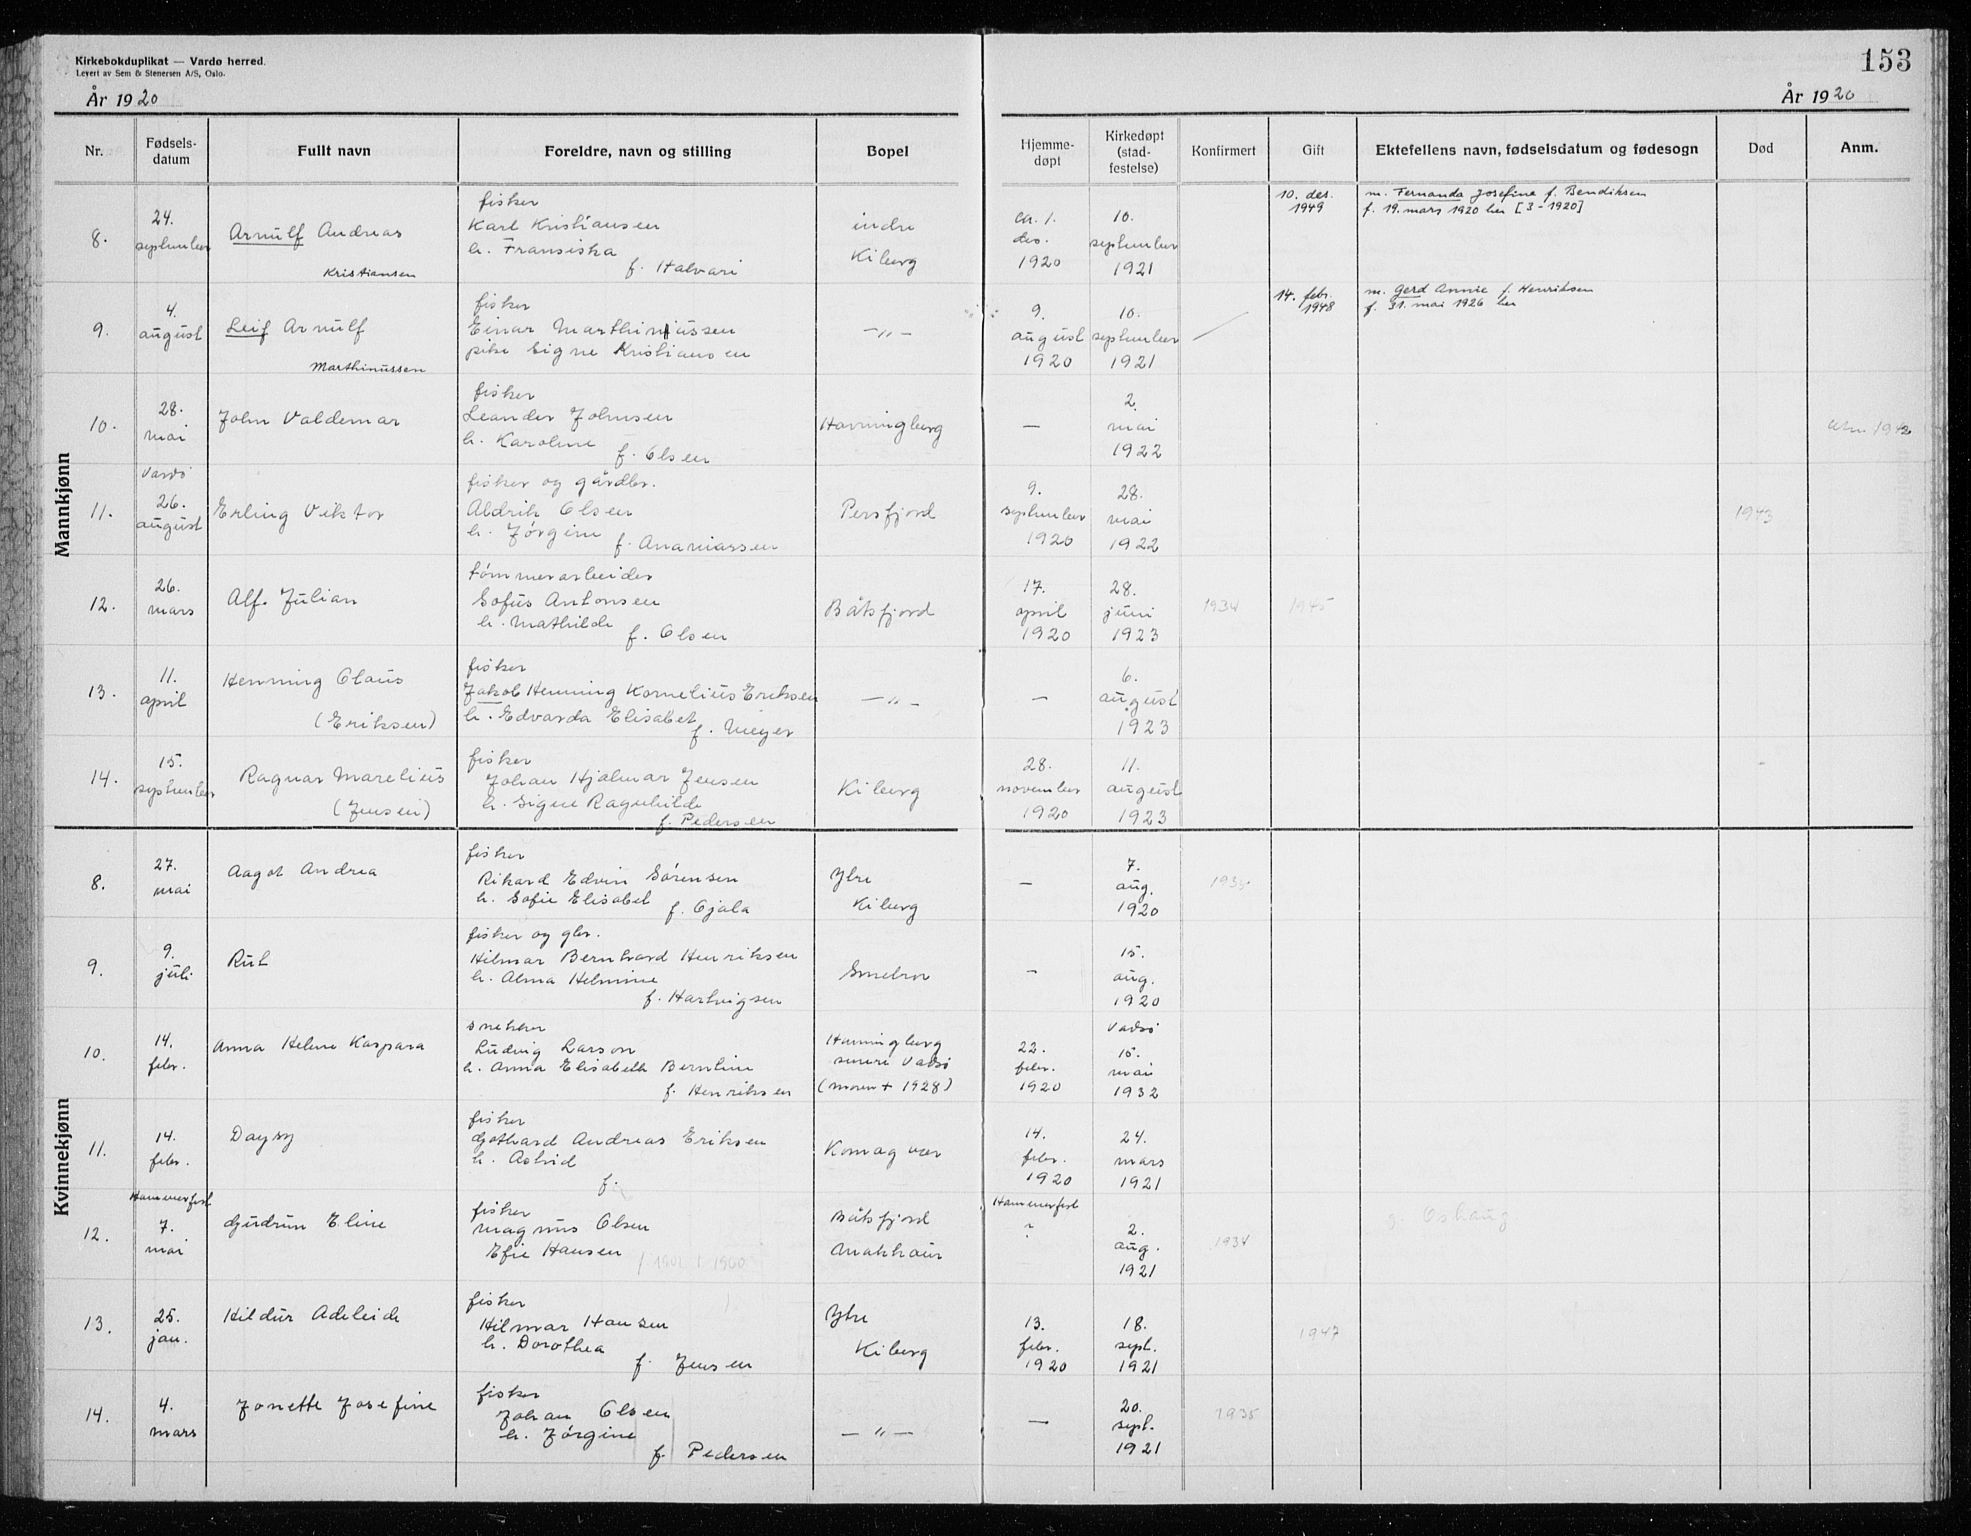 Kirkebokduplikat — Vardø herred.
Levert av Sem & Stenersen A/S, Oslo.
153
År 1920
År 1920
Nr. Fødsels-datum Fullt navn Foreldre, navn og stilling Bopel Hjemme-døpt Kirkedøpt (stad-festelse) Konfirmert Gift Ektefellens navn, fødselsdatum og fødesogn Død Anm.
Mannkjønn
8.
24.
september
Arnulf Andreas
Kristiansen
fisker
Karl Kristiansen
h. Fransiska
f. Halvari
indre
Kiberg
ca. 1.
des.
1920
10.
september
1921
10. des.
1949
m. Fernanda Josefine f. Bendiksen
f. 19. mars 1920 her [3-1920]
9.
4.
august
Leif Arnulf
Marthinussen
fisker
Einar Marthinussen
pike Signe Kristiansen
—„—
9.
august
1920
10.
september
1921
14. febr.
1948
m. Gerd Annie f. Henriksen
f. 31. mai 1926 her
10.
28.
mai
John Valdemar
fisker
Leander Johnsen
h. Karoline
f. Olsen
Havningberg
—
2.
mai
1922
11.
Vardø
26.
august
Erling Viktor
fisker og gårdbr.
Aldrik Olsen
h. Jørgine
f. Ananiassen
Persfjord
9.
september
1920
28.
mai
1922
1943
12.
26.
mars
Alf Julian
tømmerarbeider
Sofus Antonsen
h. Mathilde
f. Olsen
Båtsfjord
17.
april
1920
28.
juni
1923
1934
1945
13.
11.
april
Henning Claus
(Eriksen)
fisker
Jakob Henning Kornelius Eriksen
h. Edvarda Elisabet
f. Meyer
—„—
—
6.
august
1923
14.
15.
september
Ragnar Marelius
(Jensen)
fisker
Johan Hjalmar Jensen
h. Signe Ragnhilde
f. Pedersen
Kiberg
28.
november
1920
11.
august
1923
Kvinnekjønn
8.
27.
mai
Aagot Andrea
fisker
Rikard Edvin Sørensen
h. Sofie Elisabet
f. Ojala
Ytre
Kiberg
—
7.
aug.
1920
1935
9.
9.
juli
Rut
fisker og gbr.
Hilmar Bernhard Henriksen
h. Alma Helmine
f. Hartvigsen
Smelror
—
15.
aug.
1920
10.
14.
febr.
Anna Helene Kaspara
snekker
Ludvig Larson
h. Anna Elisabeth Berntine
f. Henriksen
Havningberg
senere Vadsø
(moren + 1928)
22.
febr.
1920
Vadsø
15.
mai
1932
11.
14.
febr.
Daysy
fisker
Gothard Andreas Eriksen
h. Astrid
f.
Komagvær
14.
febr.
1920
24.
mars
1921
12.
Hammerfest
7.
mai
Gudrun Eline
fisker
Magnus Olsen
Efie Hansen
Båtsfjord
Makkaur
Hammerfest
?
2.
aug.
1921
1934
g. Oshaug
13.
25.
jan.
Hildur Adeleide
fisker
Hilmar Hansen
h. Dorothea
f. Jensen
Ytre
Kiberg
13.
febr.
1920
18.
sept.
1921
1947
14.
4.
mars
Jonette Josefine
fisker
Johan Olsen
h. Jørgine
f. Pedersen
—„—
—
20.
sept.
1921
1935